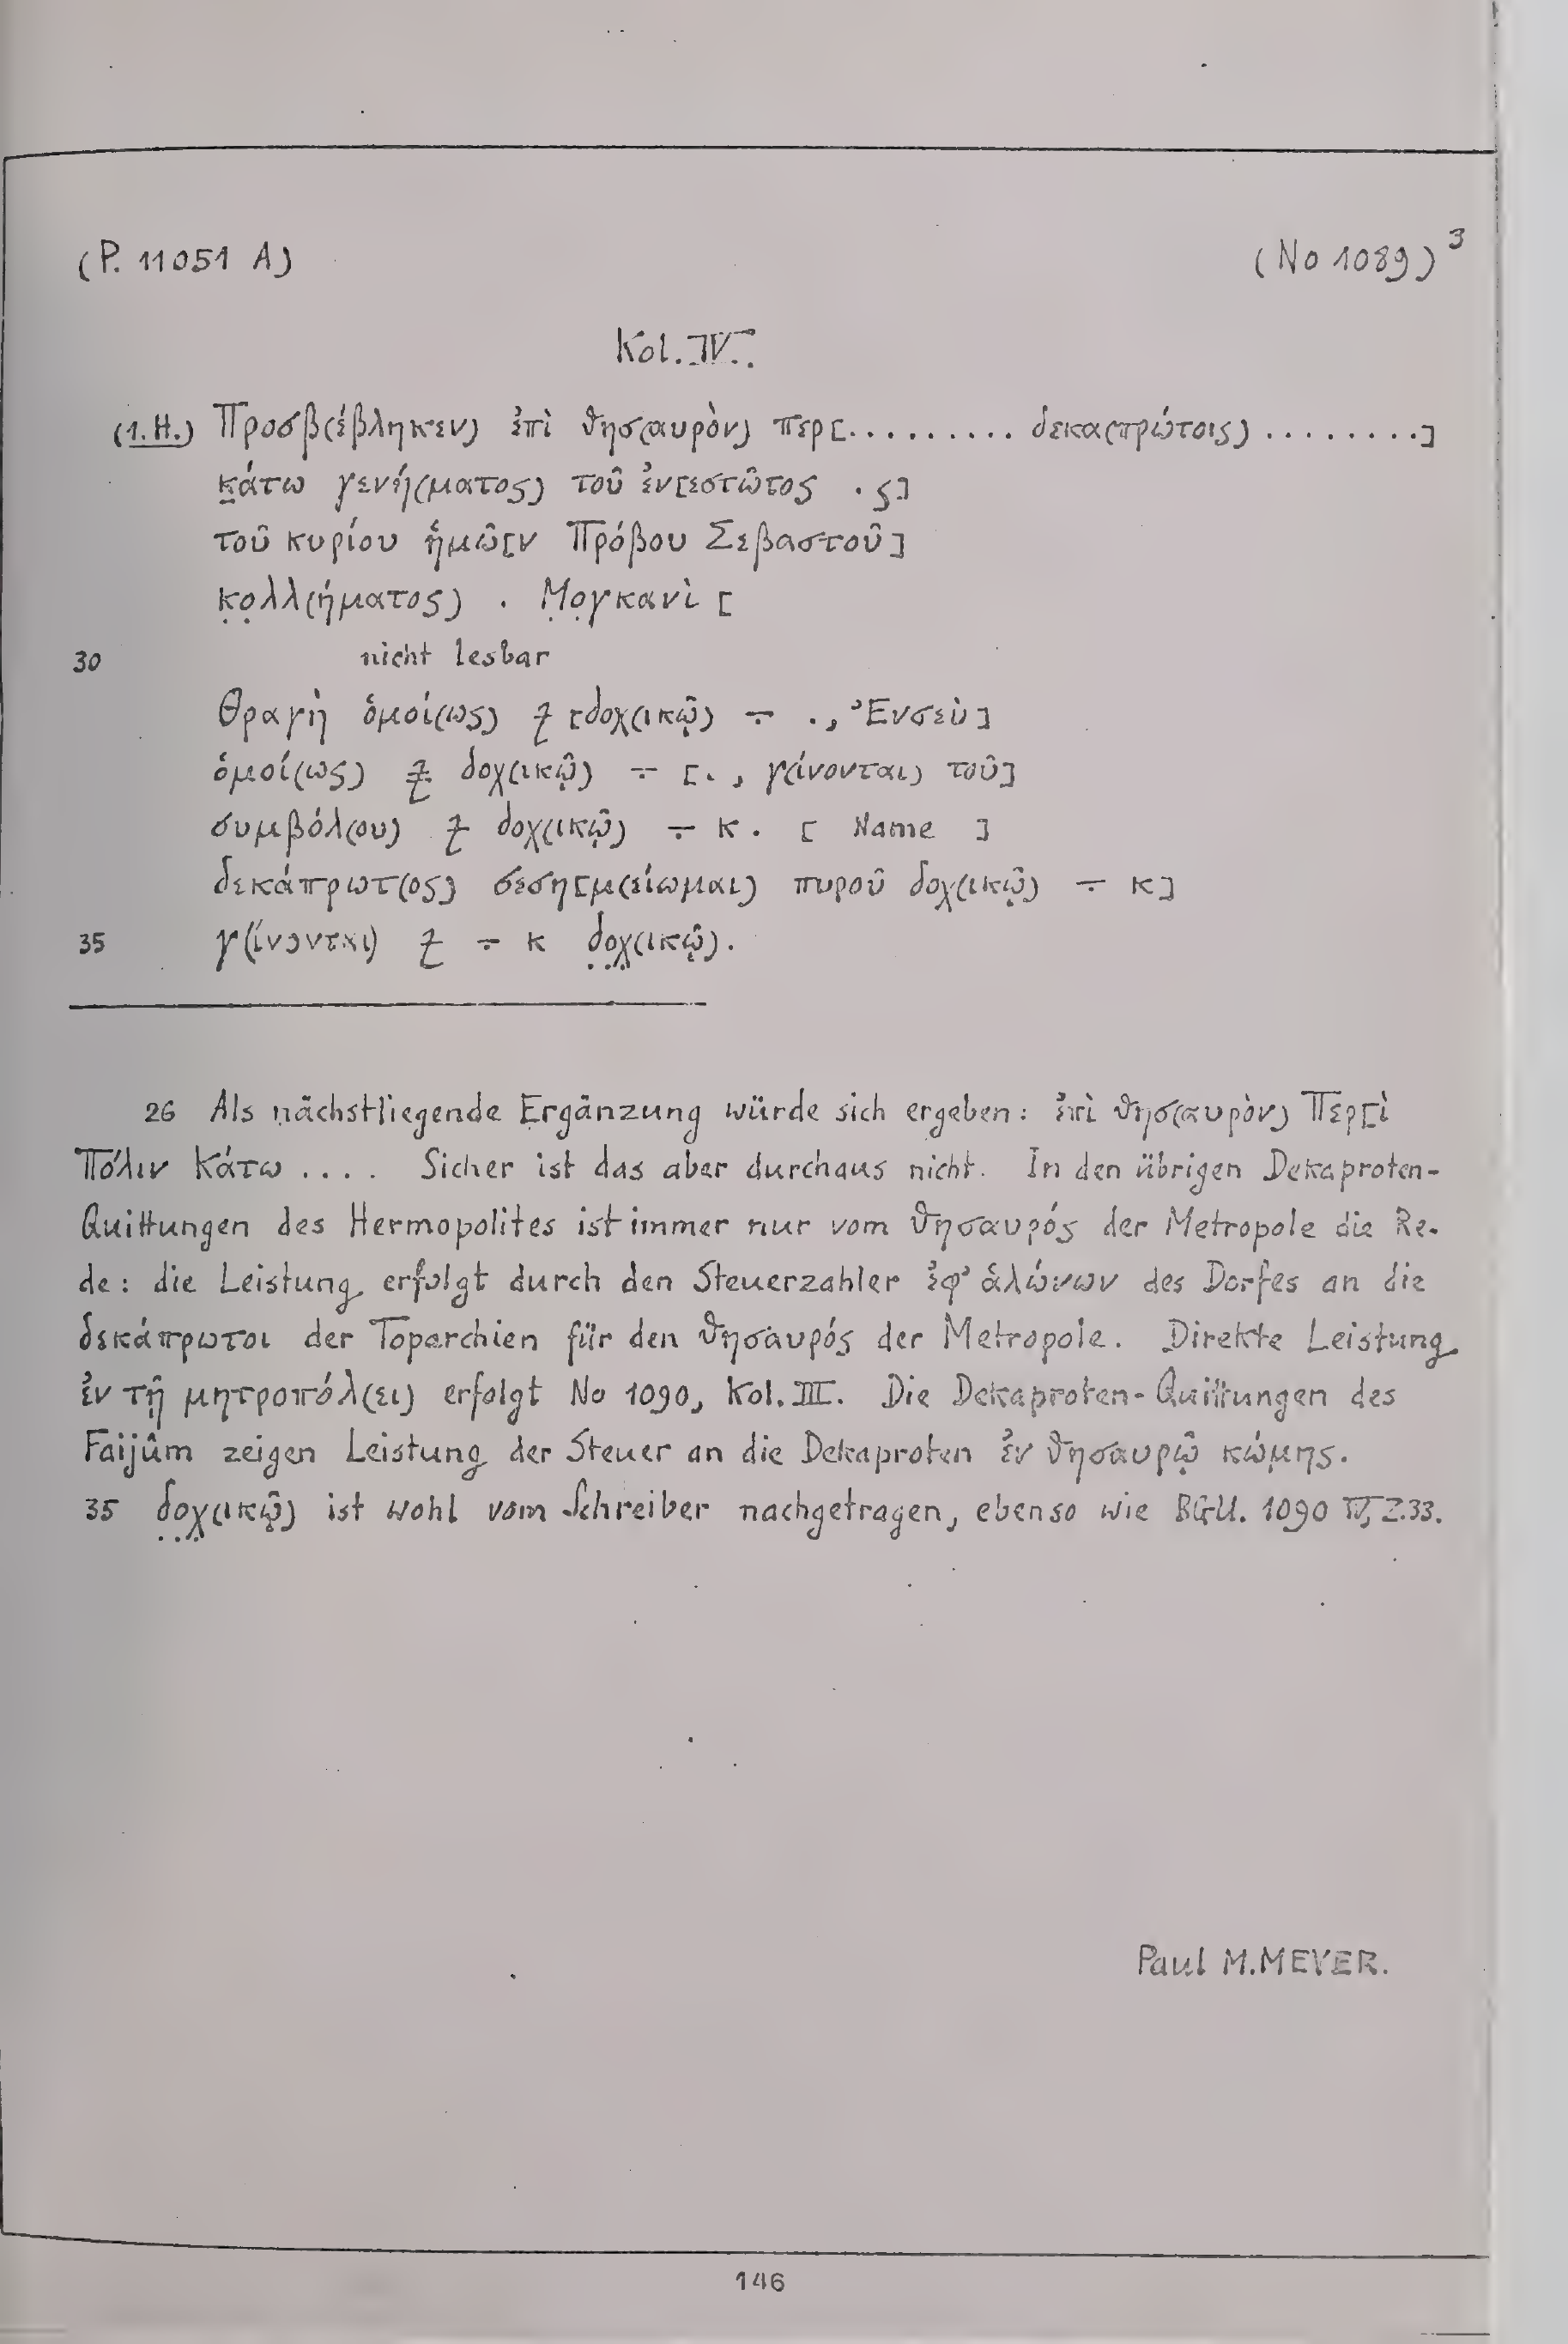 (P. 11051 A) (No 1089)³
Kol. IV.
(1. H.) Προσβ(έβληκεν) ἐπὶ θησ(αυρὸν) περ[.......... δεκα(πρώτοις) ........]
κάτω γενή(ματος) τοῦ ἐν[εστῶτος . ς]
τοῦ κυρίου ἡμῶ[ν Πρόβου Σεβαστοῦ]
κ̣ο̣λλ(ήματος) . Μ̣ο̣γκανὶ [
30 nicht lesbar
Θραγὴ ὁμοί(ως) 𐅼 [δοχ(ικῷ) ÷ ., Ἐνσεὺ]
ὁμοί(ως) 𐅼 δοχ(ικῷ) ÷ [., γ(ίνονται) τοῦ]
συμβόλ(ου) 𐅼 δοχ(ικῷ) ÷ κ . [ Name ]
δεκάπρωτ(ος) σεση[μ(είωμαι) πυροῦ δοχ(ικῷ) ÷ κ]
35 γ(ίνονται) 𐅼 ÷ κ δ̣ο̣χ̣(ικῷ).
26 Als nächstliegende Ergänzung würde sich ergeben: ἐπὶ θησ(αυρὸν) Περ[ὶ
Πόλιν Κάτω .... Sicher ist das aber durchaus nicht. In den übrigen Dekaproten-
Quittungen des Hermopolites ist immer nur vom θησαυρός der Metropole die Re-
de: die Leistung erfolgt durch den Steuerzahler ἐφ' ἁλώνων des Dorfes an die
δεκάπρωτοι der Toparchien für den θησαυρός der Metropole. Direkte Leistung
ἐν τῇ μητροπόλ(ει) erfolgt No 1090, Kol. III. Die Dekaproten-Quittungen des
Faijûm zeigen Leistung der Steuer an die Dekaproten ἐν θησαυρῷ κώμης.
35 δ̣ο̣χ̣(ικῷ) ist wohl vom Schreiber nachgetragen, ebenso wie BGU. 1090 IV, Z.33.
Paul M. MEYER.
146